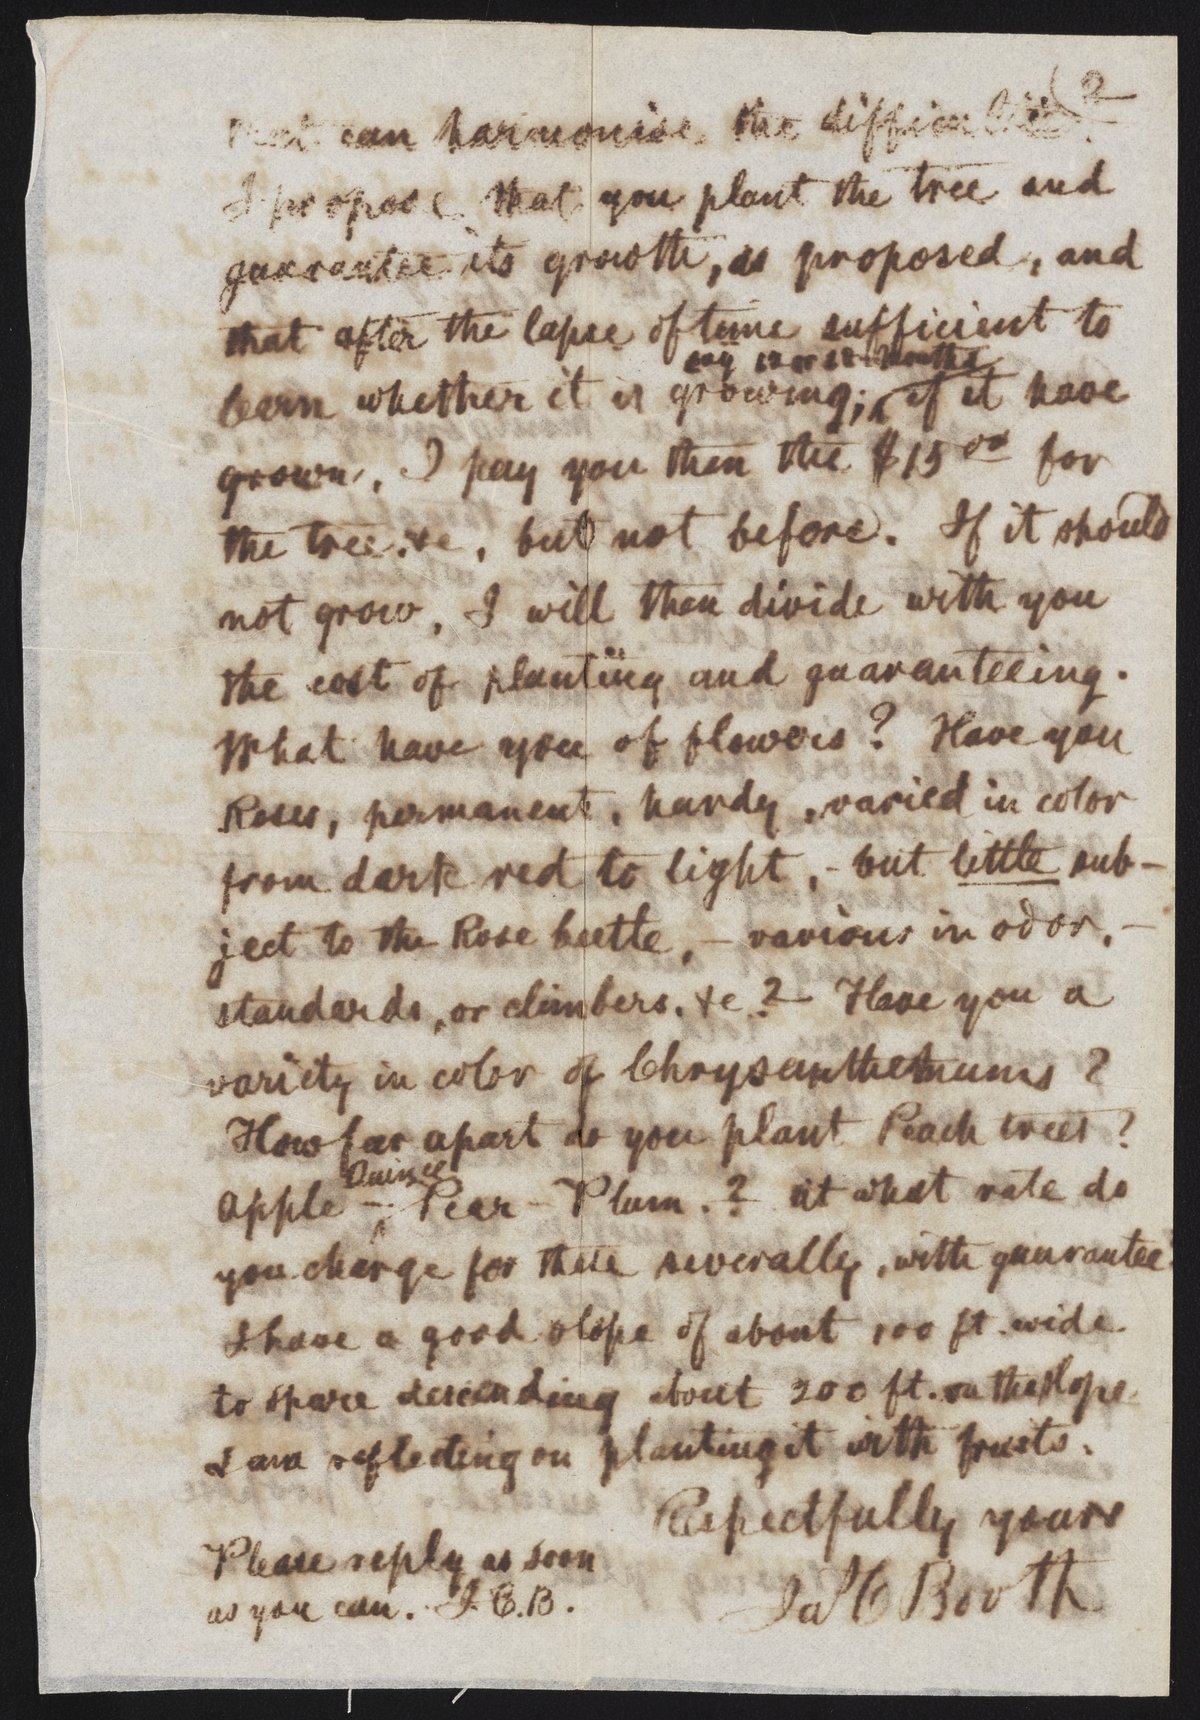 2
that can harmonise the difficulties.
I propose that you plant the tree and
guarantee its growth, as proposed, and
that after the lapse of time sufficient to
say months
learn whether it is growing; if it have
grown, I pay you then the $15 00 for
the tree &c, but not before. If it should
not grow, I will then divide with you
the cost of planting and guaranteeing.
What have you of flowers? Have you
Roses, permanent, hardy, varied in color
from dark red to light, - but little sub-
ject to the Rose beetle, - various in odor, -
standards, or climbers, &c? Have you a
variety in color of Chrysanthemums?
How far apart do you plant Peach trees?
Quince
Apple - Pear - Plum.? At what rate do
you charge for these severally, with guarantee
I have a good slope of about 100 ft. wide
to spare descending about 200 ft. on the slope
I am reflecting on planting it with fruits.
Respectfully yours
Please reply as soon
as you can. J.C.B.
Jas C Booth